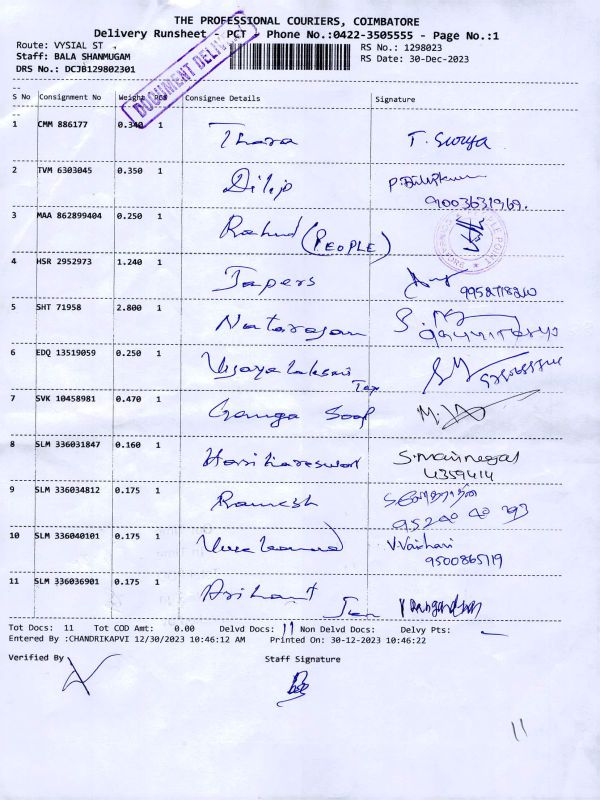 THE PROFESSIONAL COURIERS, COIMBATORE
Delivery Runsheet - PCT - Phone No.:0422-3505555 - Page No.:1
Route: VYSIAL ST .
Staff: BALA SHANMUGAM
DRS No.: DCJB129802301
RS No.: 1298023
RS Date: 30-Dec-2023
DOCUMENT DELIV
S No Consignment No Weight Pcs Consignee Details Signature
1 CMM 886177 0.340 1 Thara T. Surya
2 TVM 6303045 0.350 1 Dilip
9003631969.
3 MAA 862899404 0.250 1 Rahul (PEOPLE)
4 HSR 2952973 1.240 1 Japers
9952718210
5 SHT 71958 2.800 1 Natarajan
6 EDQ 13519059 0.250 1 Vijayalaksmi
Tex
7 SVK 10458981 0.470 1 Ganga Soap
8 SLM 336031847 0.160 1 Harihareswar
4359414
9 SLM 336034812 0.175 1 Ramesh
10 SLM 336040101 0.175 1 V.Vaishavi
9500865119
11 SLM 336036901 0.175 1 Arihant
Tot Docs: 11 Tot COD Amt: 0.00 Delvd Docs: 11 Non Delvd Docs: Delvy Pts:
Entered By :CHANDRIKAPVI 12/30/2023 10:46:12 AM Printed On: 30-12-2023 10:46:22
Verified By
Staff Signature
11